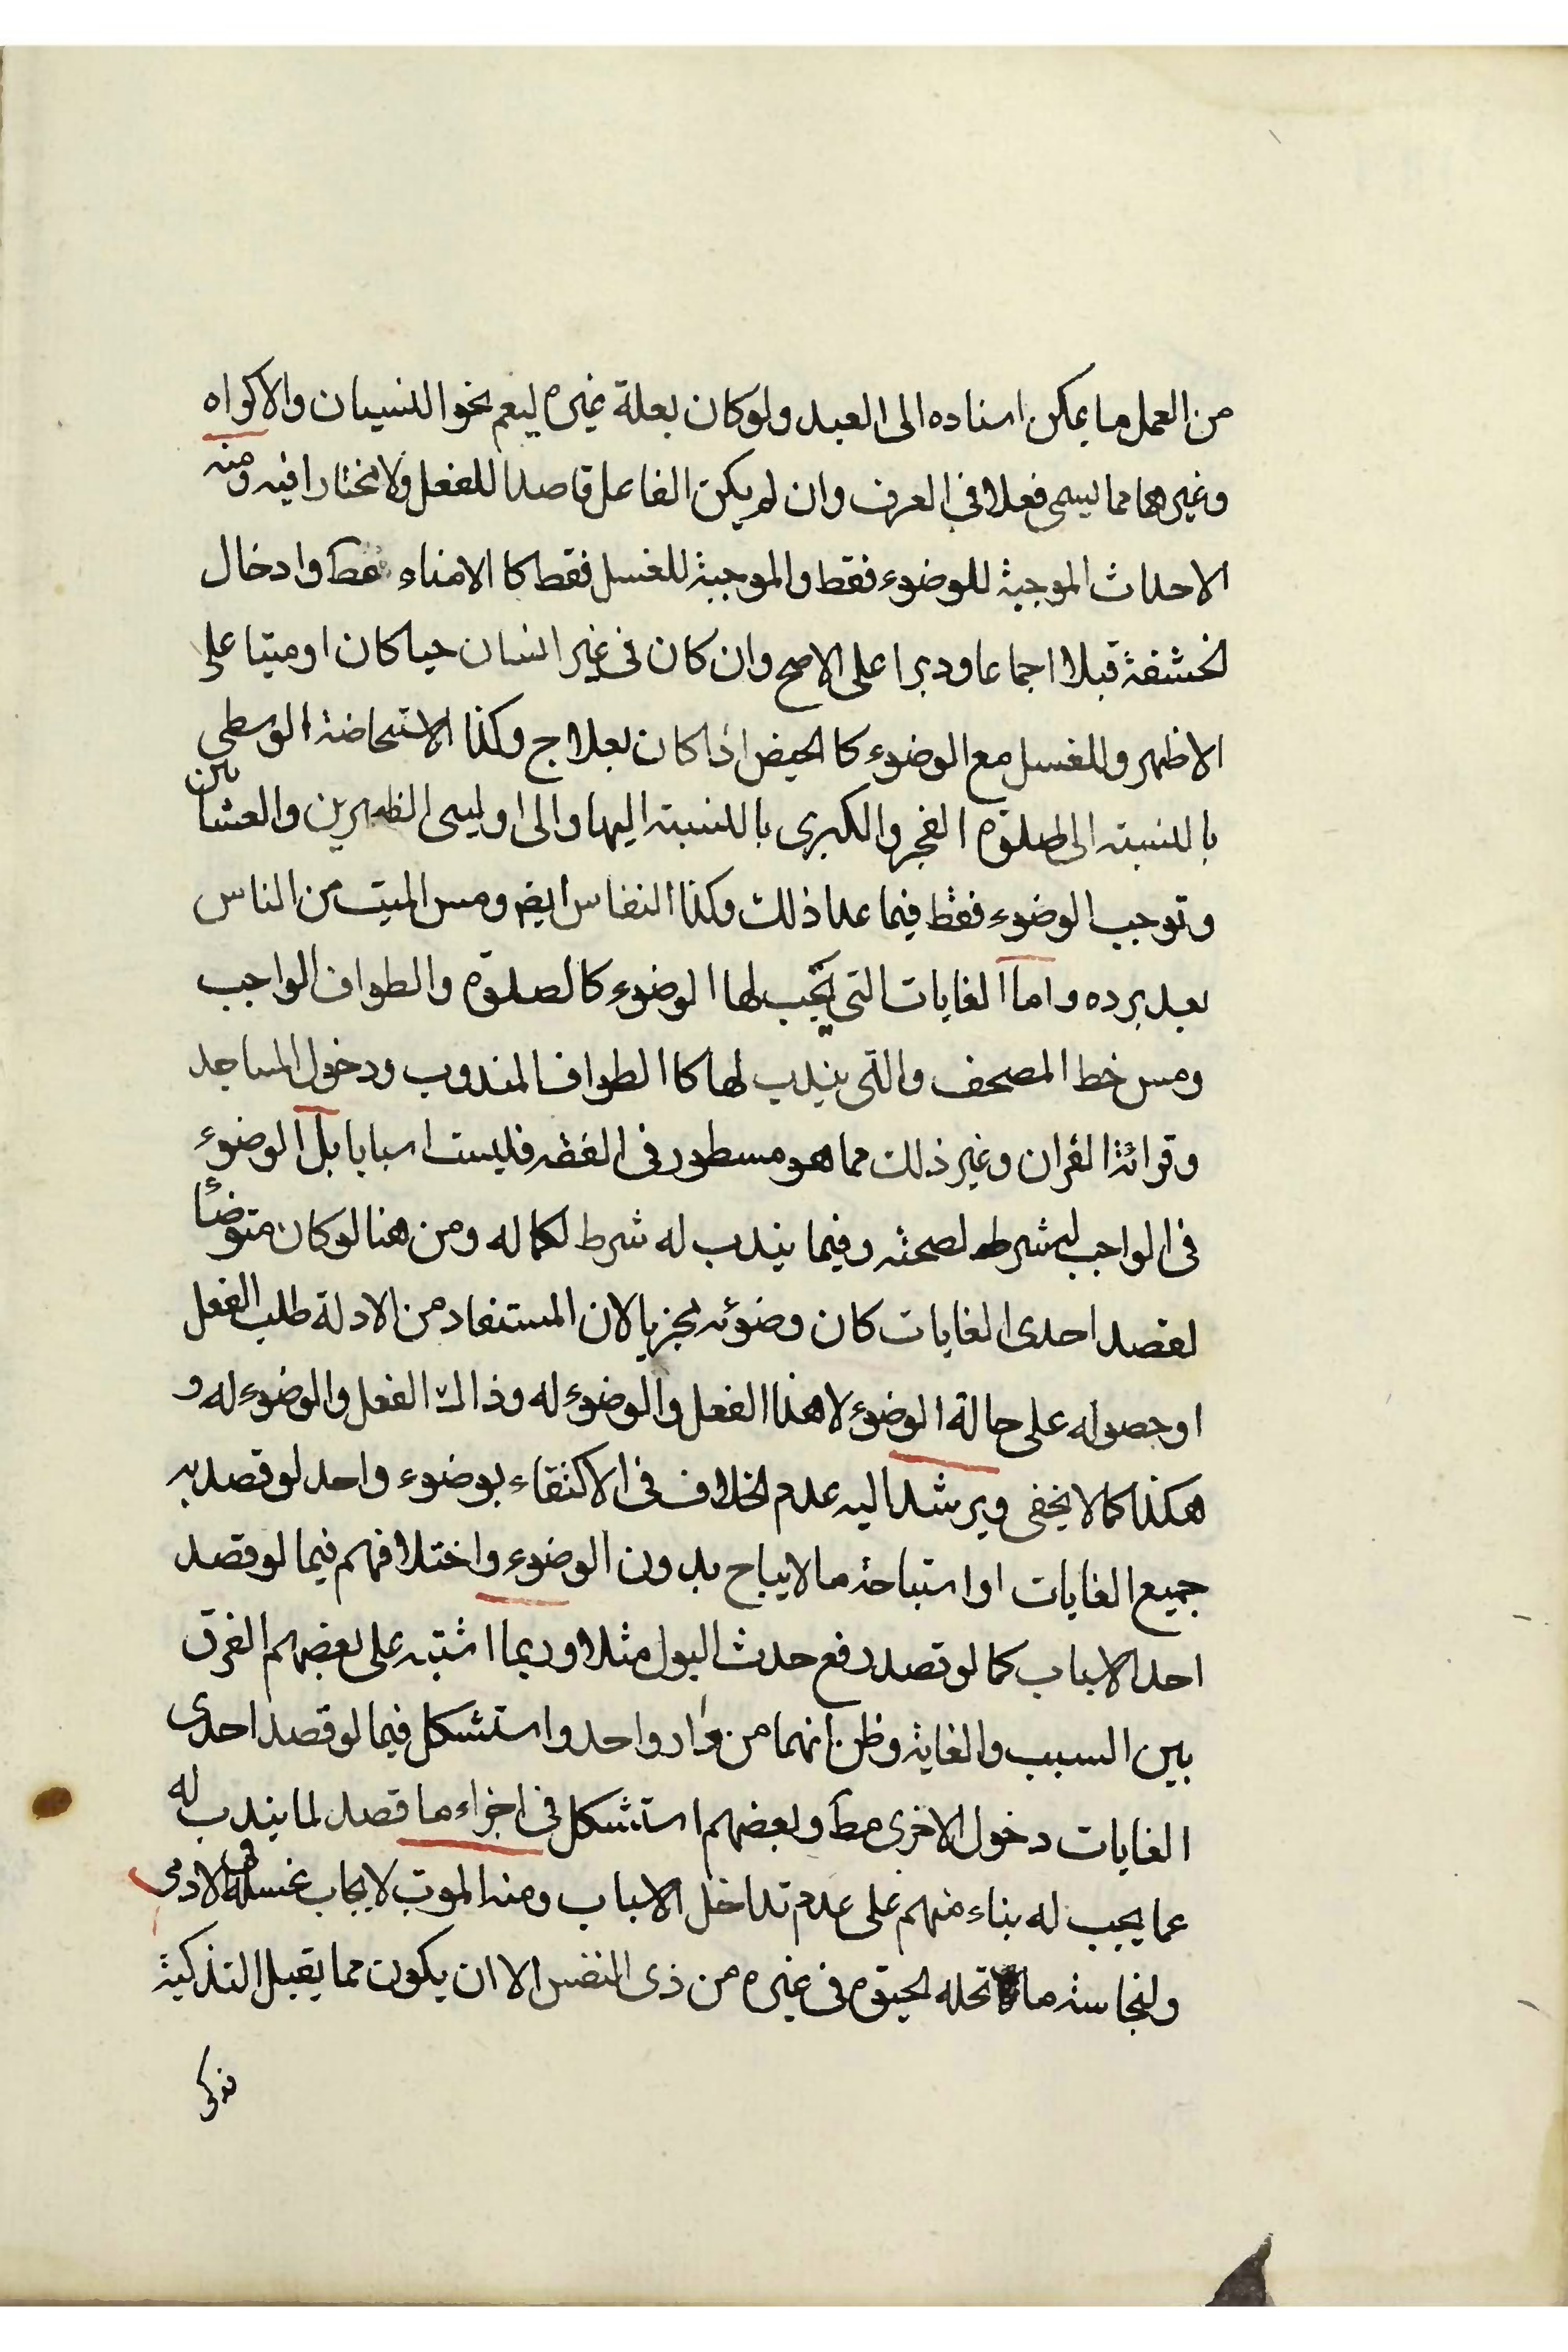 من العمل ما يمكن اسناده الى العبد ولو كان بعلة غيره ليعم نحو النسيان والاكراه
وغيرهما مما يسمى فعلا فى العرف وان لم يكن الفاعل قاصدا للفعل ولا مختارا فيه ومنه
الاحداث الموجبة للوضوء فقط والموجبة للغسل فقط كا الامناء مط وادخال
لحشفة قبلا اجماعا ودبرا على الاصح وان كان فى غير انسان حيا كان او ميتا على
الاظهر وللغسل مع الوضوء كا الحيض اذا كان بعلاج وكذا الاستحاضة الوسطى
بالنسبته الى صلوة الفجر والكبرى بالنسبته اليها والى اوليى الظهرين والعشائين
وتوجب الوضوء فقط فيما عدا ذلك وكذا النفاس ايضا ومس الميت من الناس
بعد برده واما الغايات التى يجب لها الوضوء كالصلوة والطواف الواجب
ومس خط المصحف والتى يندب لها كا الطواف المندوب ودخول المساجد
وقرائة القران وغير ذلك مما هو مسطور فى الفقه فليست اسبابا بل الوضوء
فى الواجب له شرط لصحته وفيما يندب له شرط لكماله ومن هنا لو كان متوضئا
لقصد احدى الغايات كان وضوئه مجزيا لان المستفاد من الادلة طلب الفعل
او حصوله على حالة الوضوء لا هذا الفعل والوضوء له وذاك الفعل والوضوء له و
هكذا كما لا يخفى ويرشد اليه عدم الخلاف فى الاكتفاء بوضوء واحد لو قصد به
جميع الغايات او استباحة ما لا يباح بدون الوضوء واختلافهم فيما لو قصد
احد الاسباب كما لو قصد رفع حدث البول مثلا وربما اشتبه على بعضهم الفرق
بين السبب والغاية وظن انهما من واد واحد واستشكل فيما لو قصد احدى
الغايات دخول الاخرى مط وبعضهم استشكل فى اجزاء ما قصد لما يندب له
عما يجب له بناء منهم على عدم تداخل الاسباب ومنه الموت لايجاب غسله فى الادمى
ولنجاسته ما تحله الحيوة فى غيره من ذى النفس الا ان يكون مما يقبل التذكية